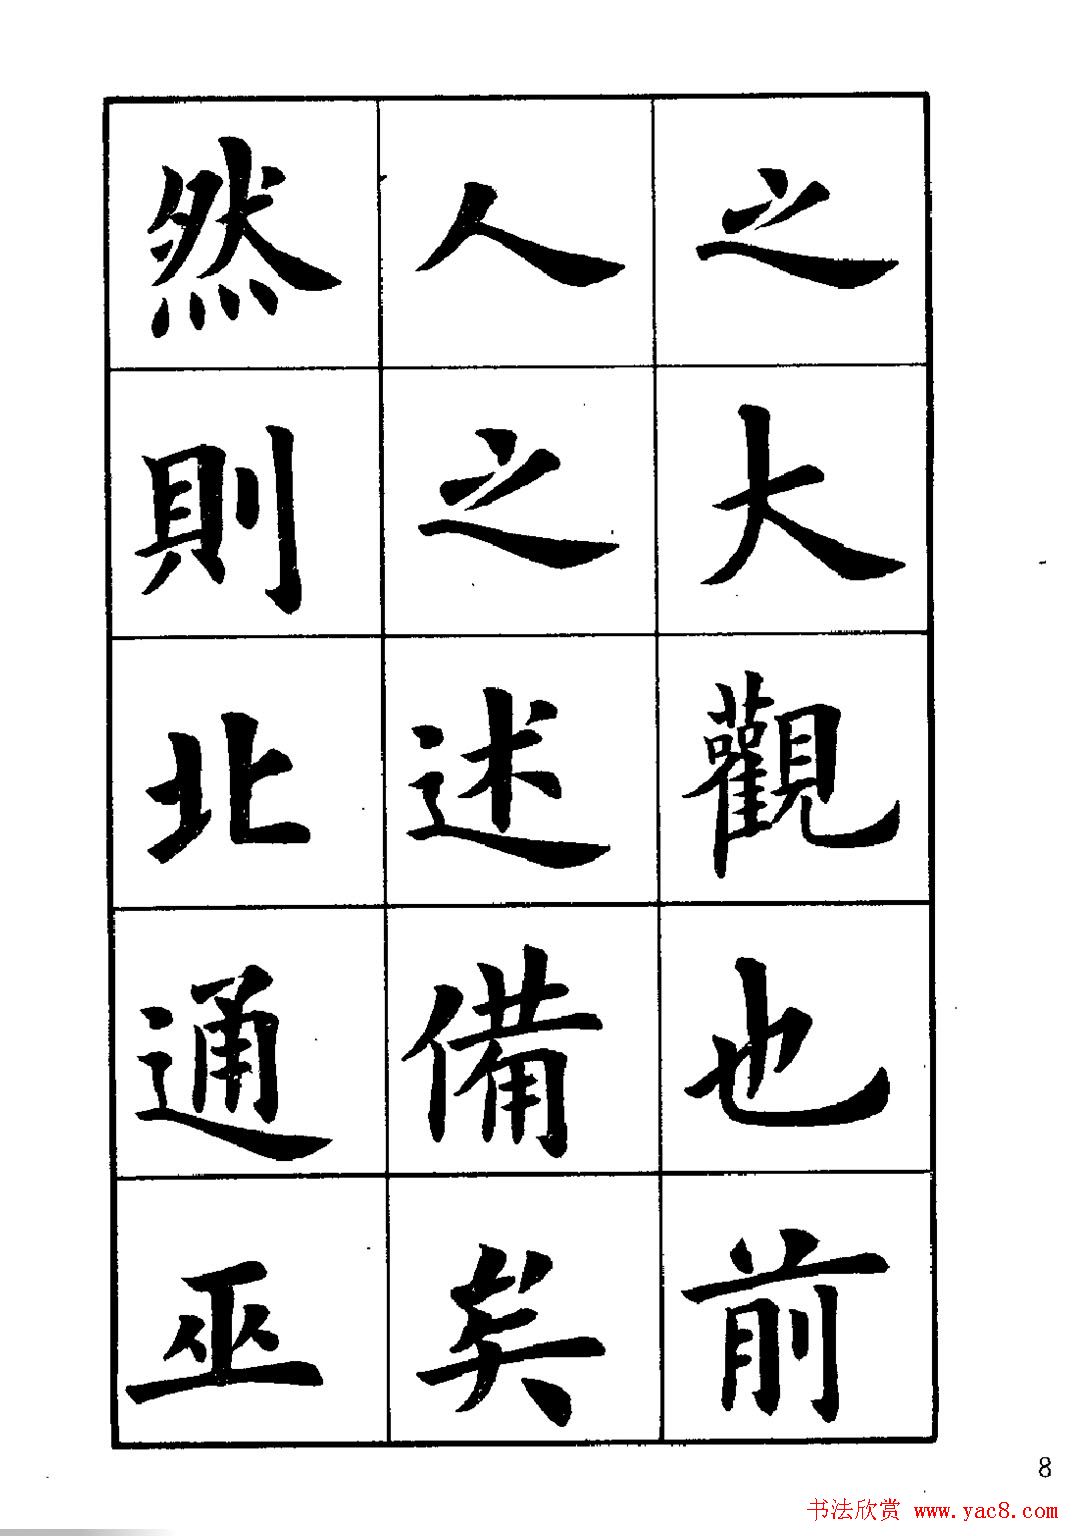 之大觀也前
人之述備矣
然則北通巫
8
书法欣赏 www.yac8.com